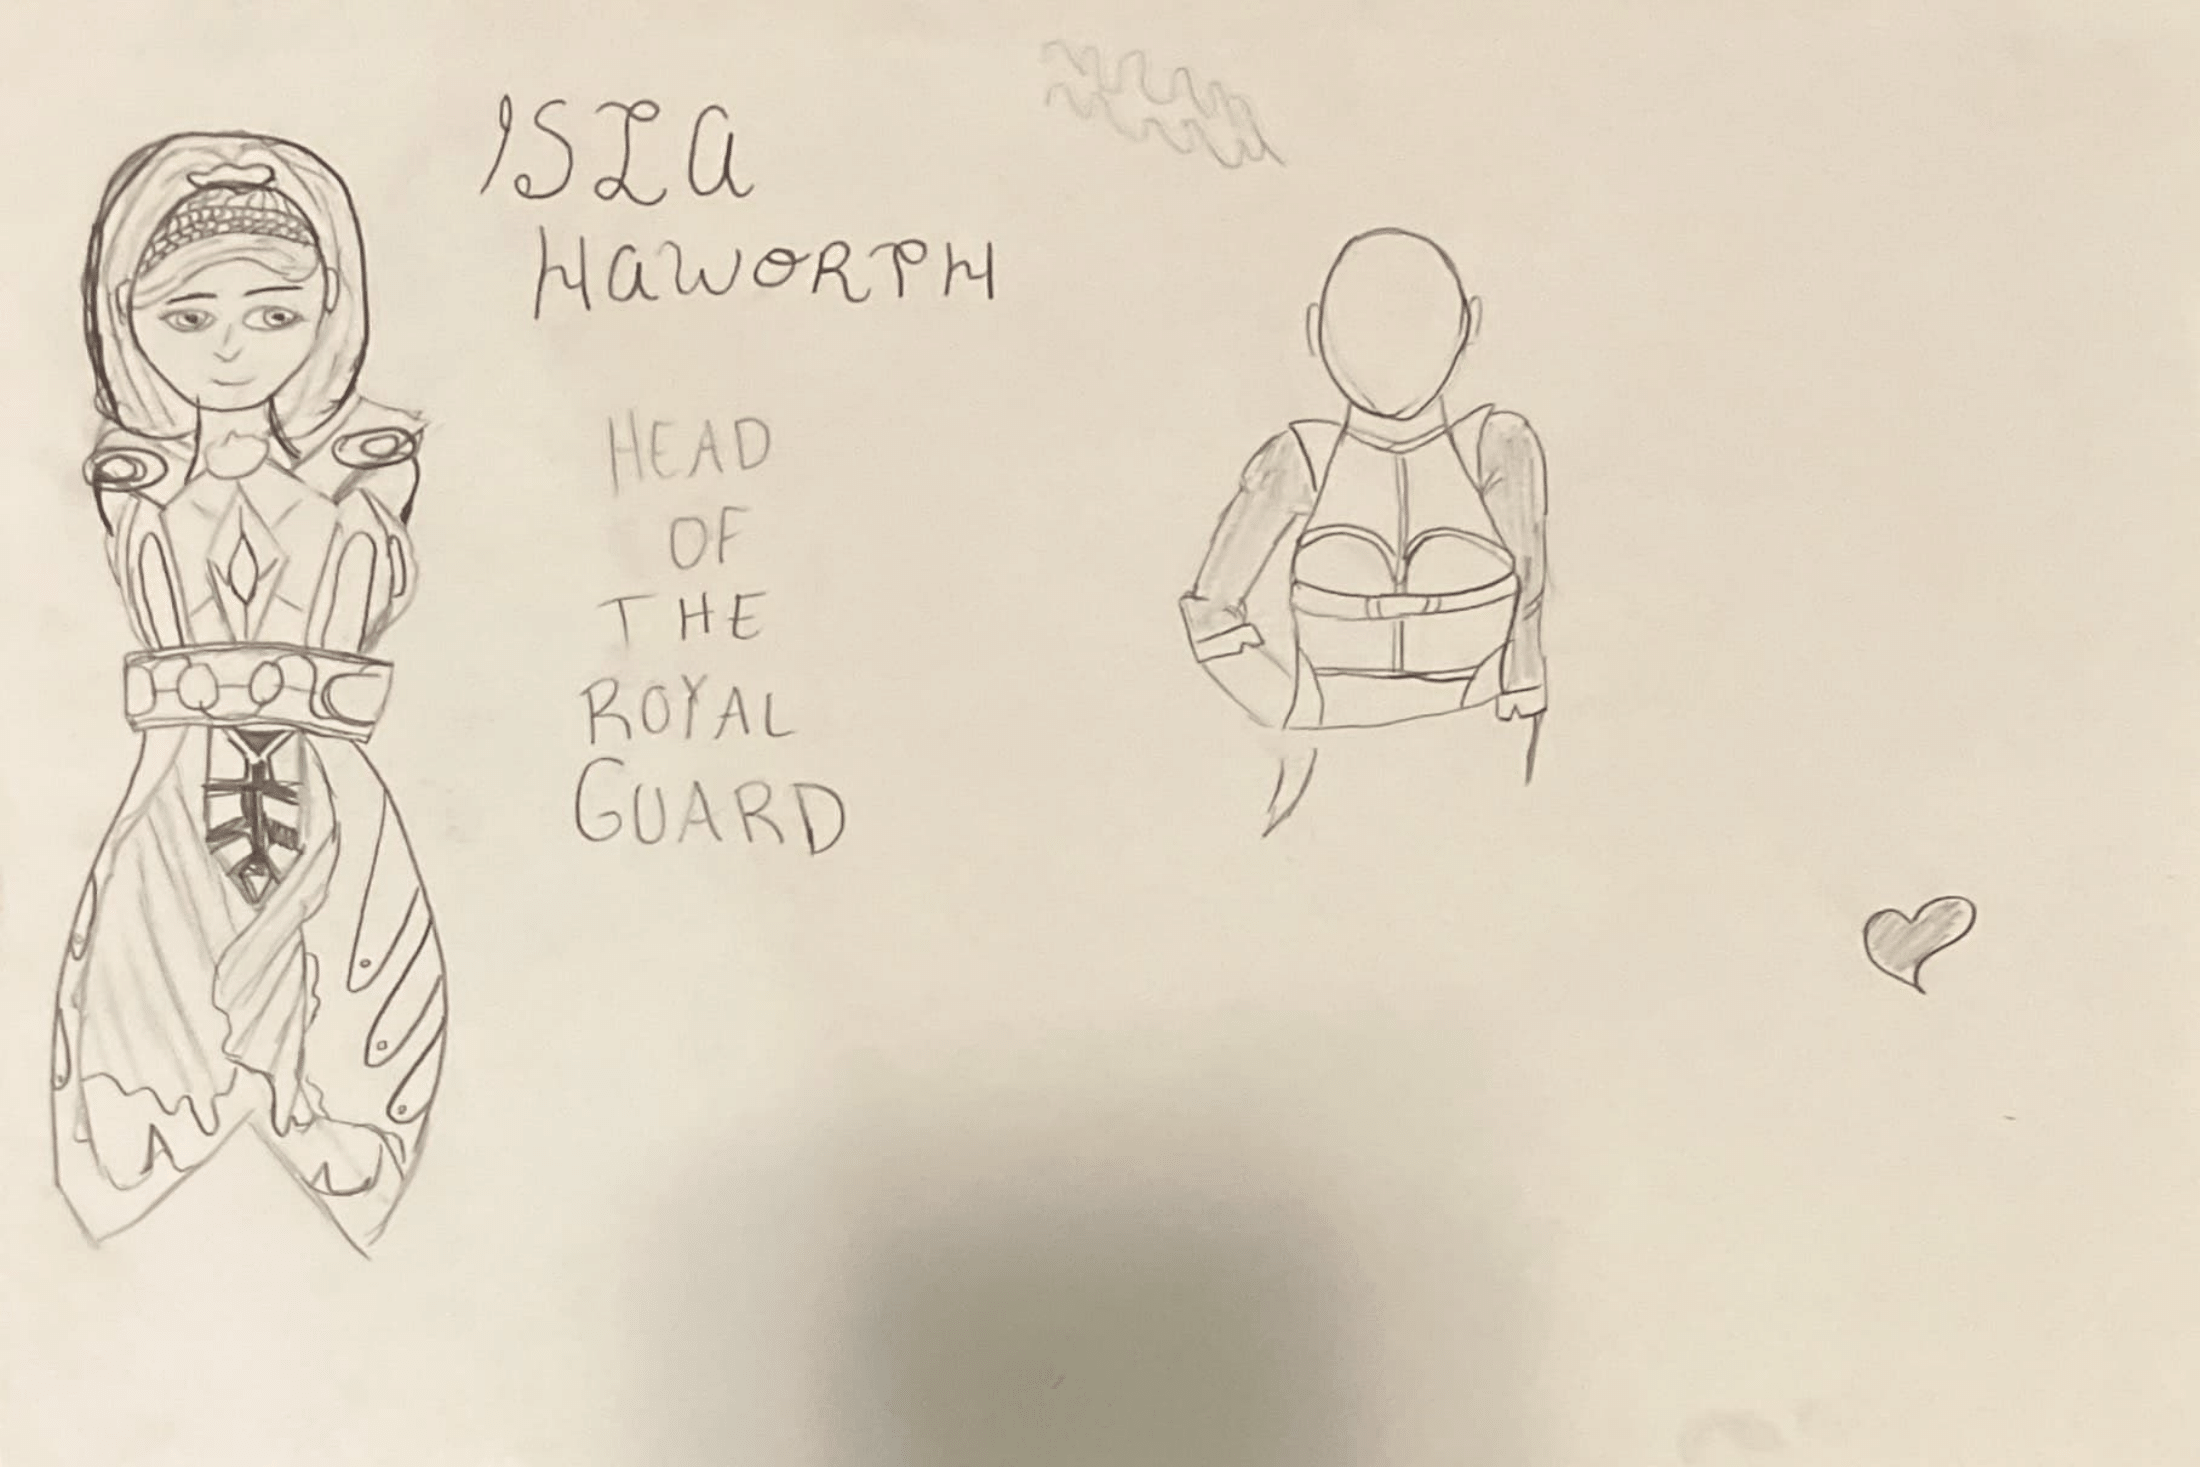 ISLA
HAWORTH
HEAD
OF
THE
ROYAL
GUARD